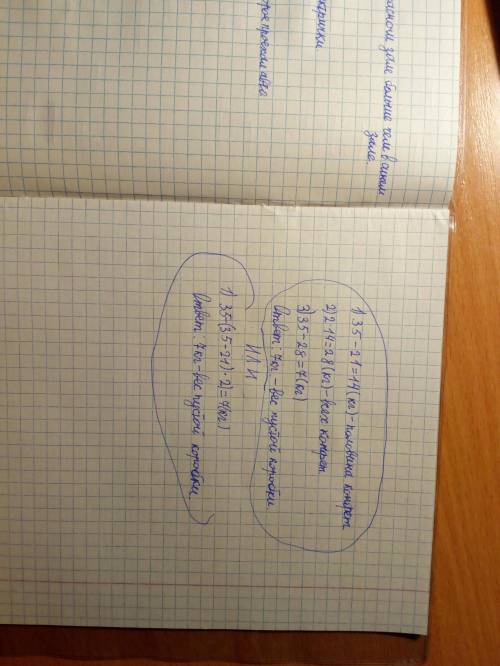 зале больше чем в синем
зале.
проехали авто
1) 35-21=14(кг)-половина конфет
2) 2·14=28(кг)-всех конфет.
3) 35-28=7(кг)
Ответ: 7кг-вес пустой коробки.
ИЛИ
1) 35-(35-21)·2)=7(кг)
Ответ: 7кг-вес пустой коробки.